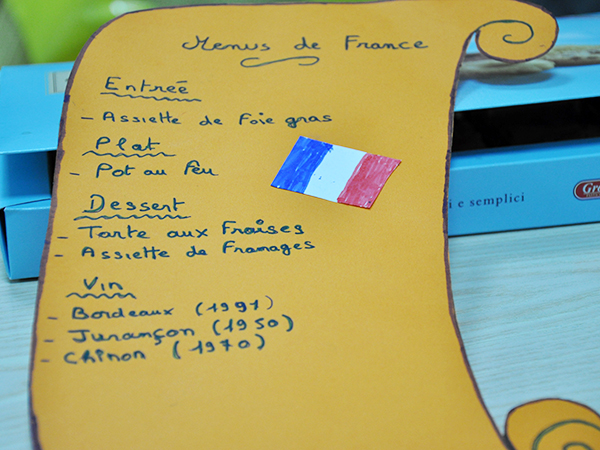 Menus de France
Entrée
- Assiette de Foie gras
Plat
- Pot au Feu
Dessert
- Tarte aux Fraises
- Assiette de Fromages
Vin
- Bordeaux (1991)
- Jurançon (1950)
- Chinon (1970)
i e semplici
Gr